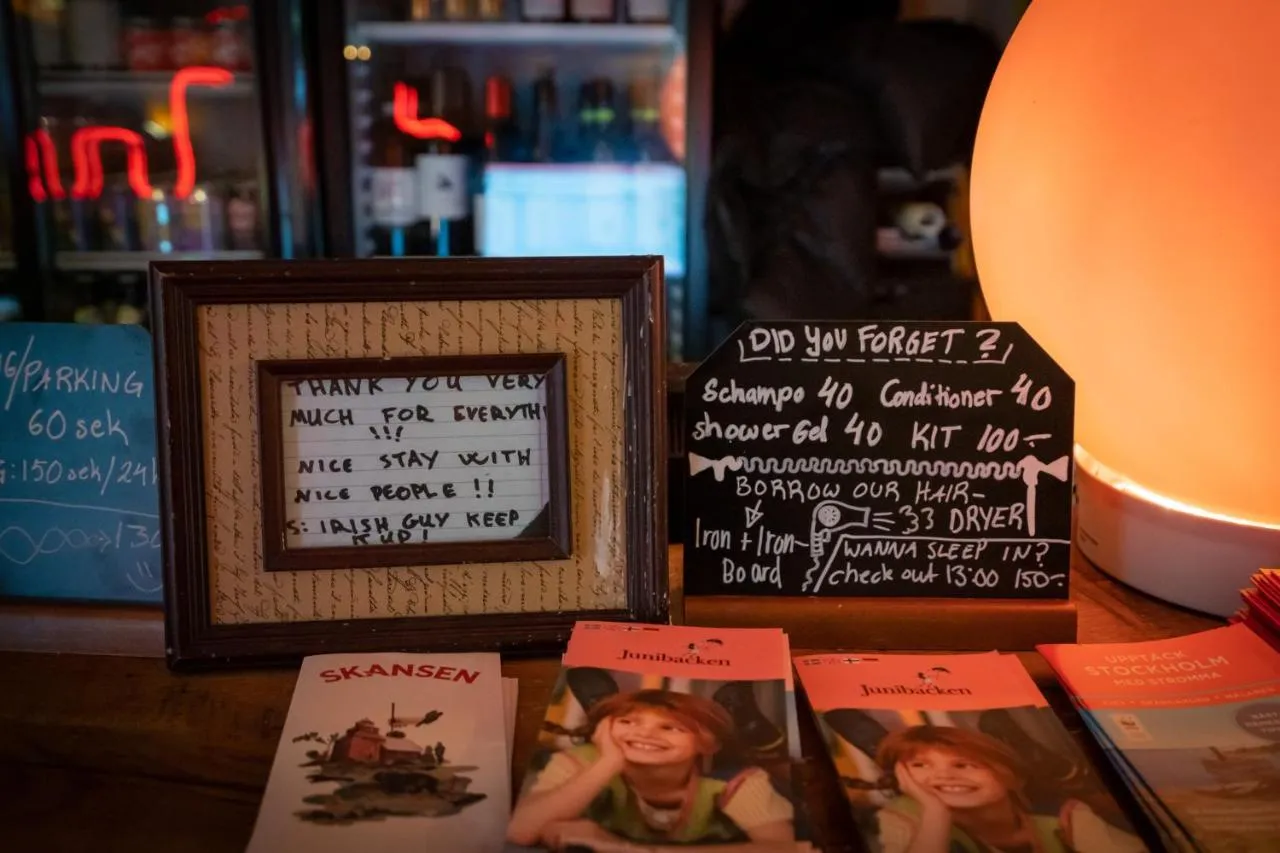 PARKING
60 sek
:150sek/24h
THANK YOU VERY
MUCH FOR EVERYTH
!!!
NICE STAY WITH
NICE PEOPLE !!
S: IRISH GUY KEEP
IT UP!
DID YOU FORGET ?
Schampo 40 Conditioner 40
shower Gel 40 KIT 100:-
BORROW OUR HAIR-
DRYER
Iron + Iron-
Board
WANNA SLEEP IN?
check out 13:00 150:-
SKANSEN
Junibacken
Junibacken
UPPTÄCK
STOCKHOLM
MED STRÖMMA